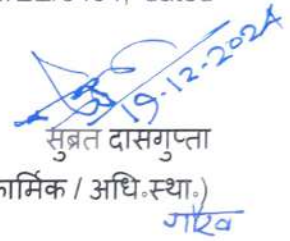 19-12-2024
सुब्रत दासगुप्ता
कार्मिक / अधि॰स्था॰)